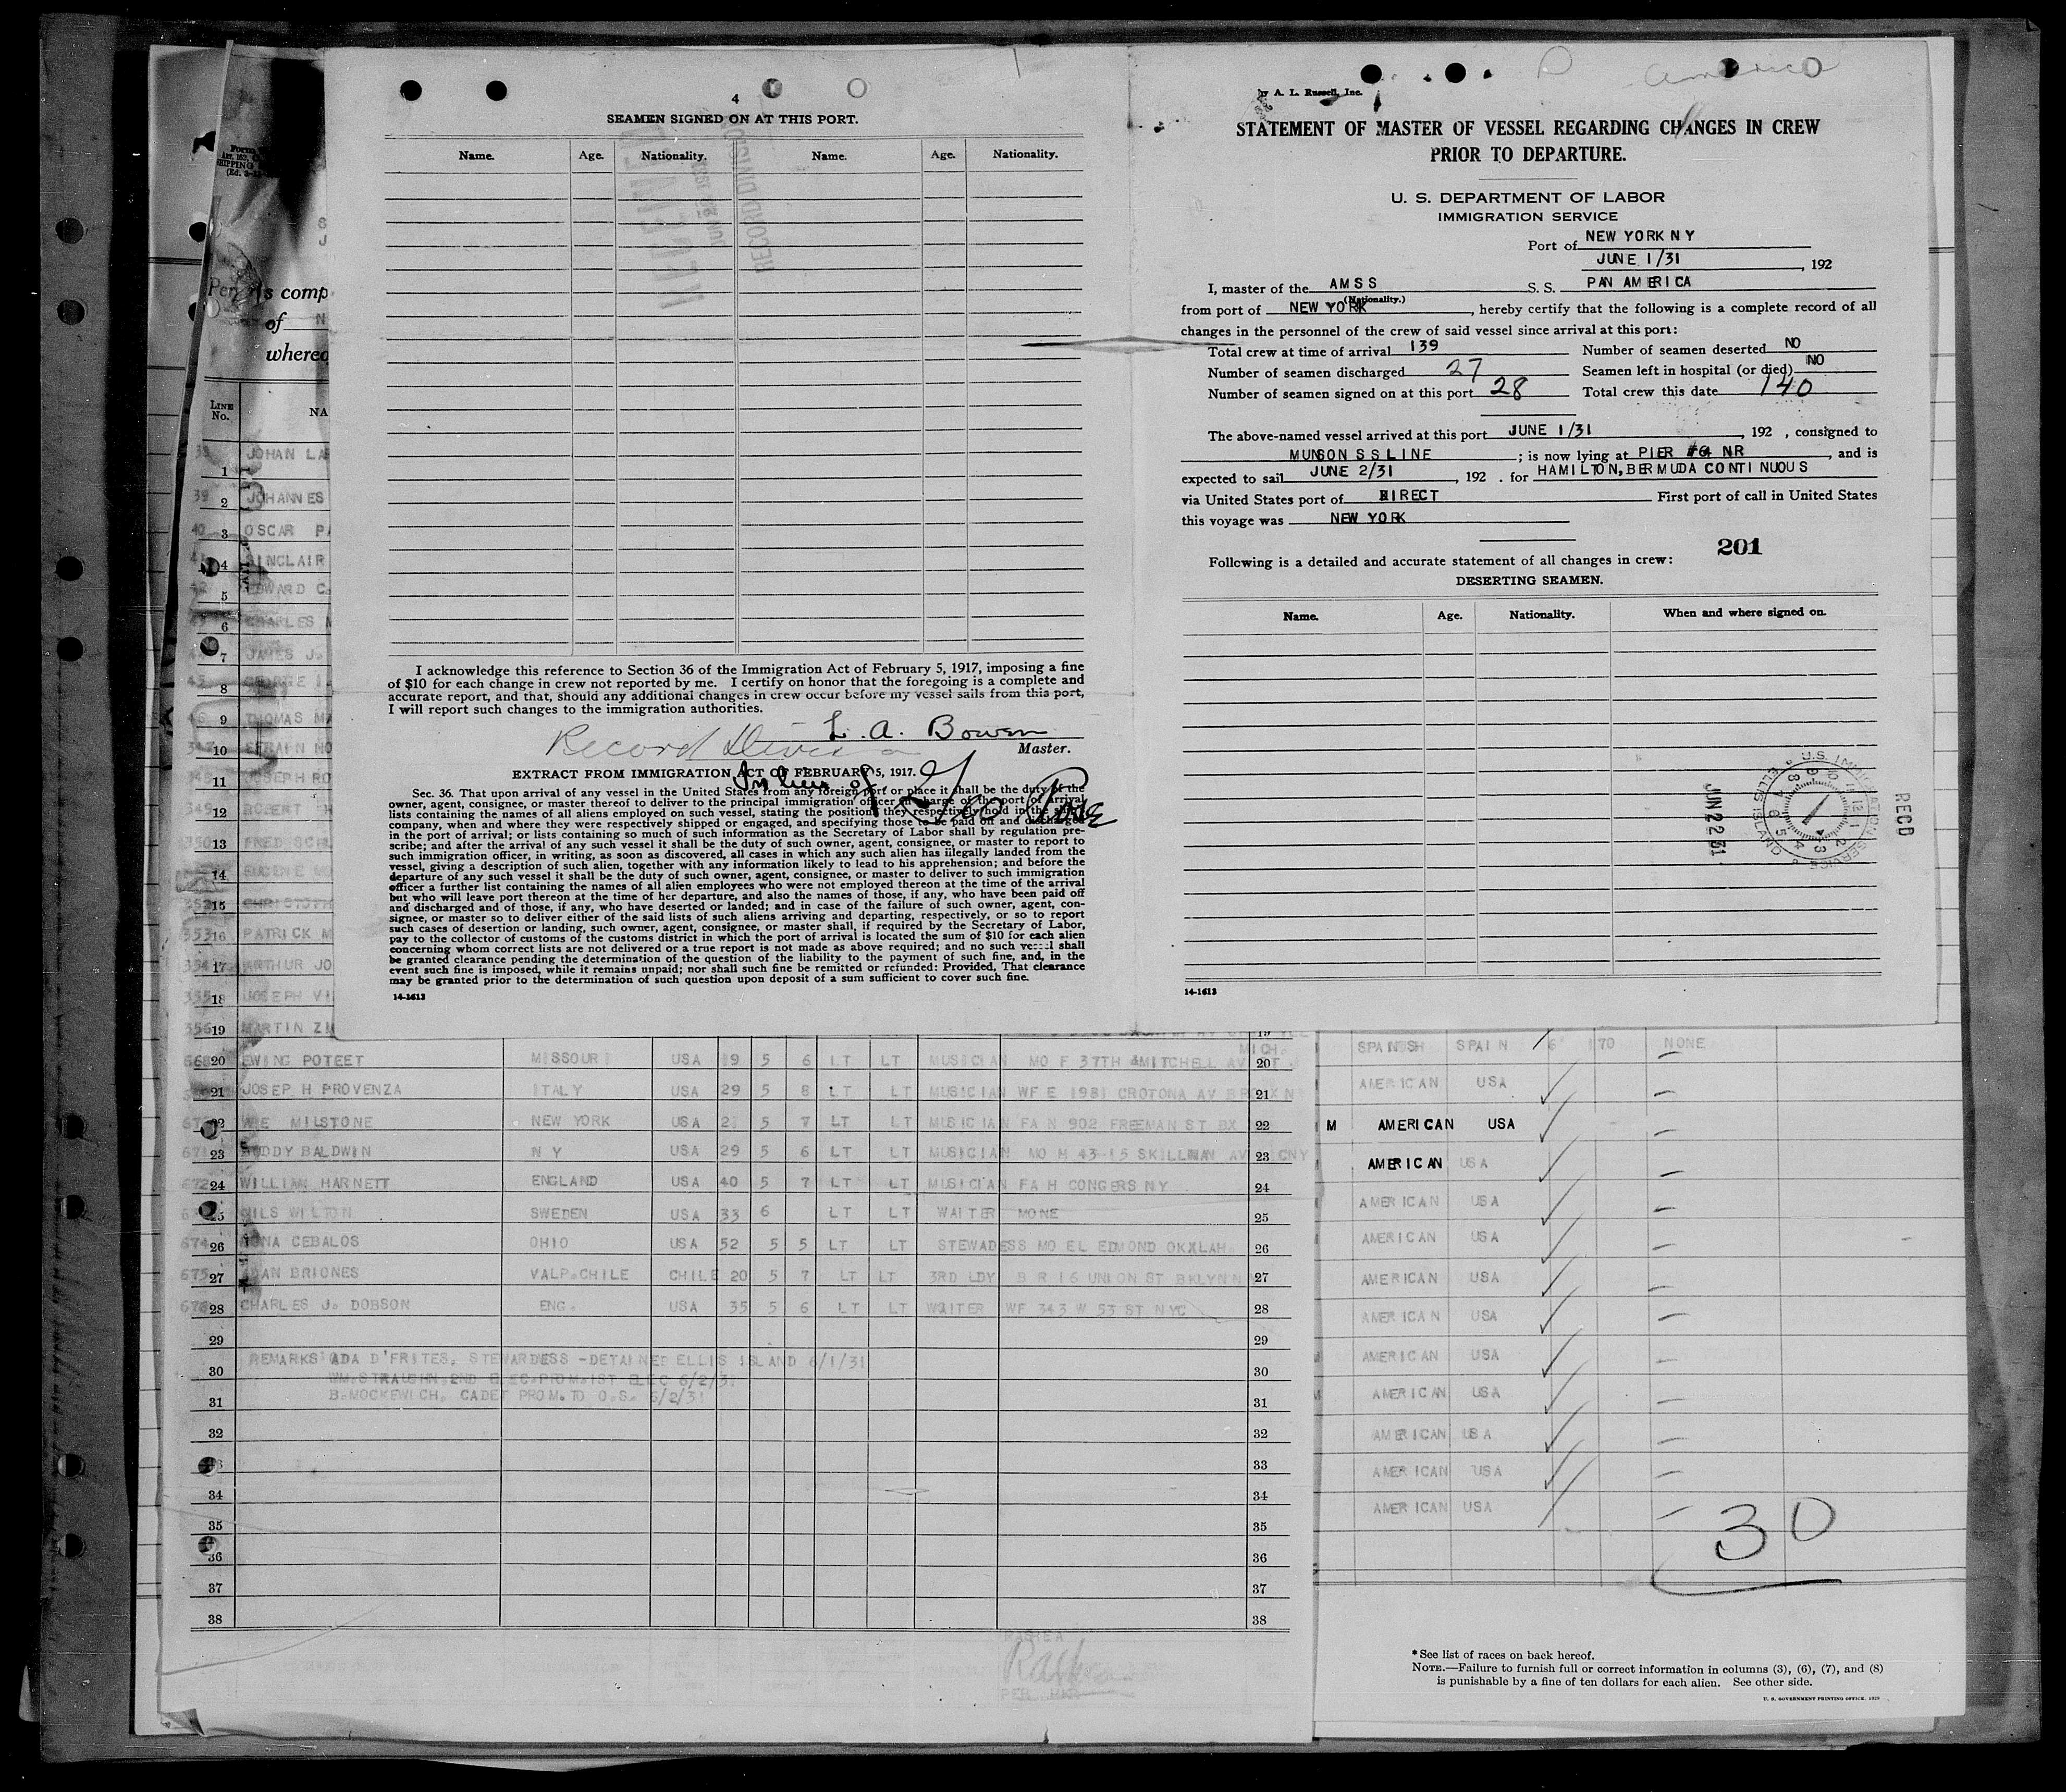 4
SEAMEN SIGNED ON AT THIS PORT.
Name. Age. Nationality. Name. Age. Nationality.
RECORD DIVISION
I acknowledge this reference to Section 36 of the Immigration Act of February 5, 1917, imposing a fine
of $10 for each change in crew not reported by me. I certify on honor that the foregoing is a complete and
accurate report, and that, should any additional changes in crew occur before my vessel sails from this port,
I will report such changes to the immigration authorities.
L. A. Bowen
Record
Master.
EXTRACT FROM IMMIGRATION ACT OF FEBRUARY 5, 1917.
In lieu of
Sec. 36. That upon arrival of any vessel in the United States from any foreign port or place it shall be the duty of the
owner, agent, consignee, or master thereof to deliver to the principal immigration officer in charge of the port of arrival
lists containing the names of all aliens employed on such vessel, stating the positions they respectively hold in the
company, when and where they were respectively shipped or engaged, and specifying those to be paid off and discharged
in the port of arrival; or lists containing so much of such information as the Secretary of Labor shall by regulation pre-
scribe; and after the arrival of any such vessel it shall be the duty of such owner, agent, consignee, or master to report to
such immigration officer, in writing, as soon as discovered, all cases in which any such alien has illegally landed from the
vessel, giving a description of such alien, together with any information likely to lead to his apprehension; and before the
departure of any such vessel it shall be the duty of such owner, agent, consignee, or master to deliver to such immigration
officer a further list containing the names of all alien employees who were not employed thereon at the time of the arrival
but who will leave port thereon at the time of her departure, and also the names of those, if any, who have been paid off
and discharged and of those, if any, who have deserted or landed; and in case of the failure of such owner, agent, con-
signee, or master so to deliver either of the said lists of such aliens arriving and departing, respectively, or so to report
such cases of desertion or landing, such owner, agent, consignee, or master shall, if required by the Secretary of Labor,
pay to the collector of customs of the customs district in which the port of arrival is located the sum of $10 for each alien
concerning whom correct lists are not delivered or a true report is not made as above required; and no such vessel shall
be granted clearance pending the determination of the question of the liability to the payment of such fine, and, in the
event such fine is imposed, while it remains unpaid; nor shall such fine be remitted or refunded: Provided, That clearance
may be granted prior to the determination of such question upon deposit of a sum sufficient to cover such fine.
14-1613
America
by A. L. Russell, Inc.
STATEMENT OF MASTER OF VESSEL REGARDING CHANGES IN CREW
PRIOR TO DEPARTURE.
U. S. DEPARTMENT OF LABOR
IMMIGRATION SERVICE
Port of NEW YORK N Y
JUNE 1/31, 192
I, master of the AMSS S. S. PAN AMERICA
(Nationality.)
from port of NEW YORK, hereby certify that the following is a complete record of all
changes in the personnel of the crew of said vessel since arrival at this port:
Total crew at time of arrival 139 Number of seamen deserted NO
Number of seamen discharged 27 Seamen left in hospital (or died) NO
Number of seamen signed on at this port 28 Total crew this date 140
The above-named vessel arrived at this port JUNE 1/31, 192 , consigned to
MUNSON S S LINE; is now lying at PIER #64 NR, and is
expected to sail JUNE 2/31, 192 . for HAMILTON, BERMUDA CONTINUOUS
via United States port of DIRECT First port of call in United States
this voyage was NEW YORK
201
Following is a detailed and accurate statement of all changes in crew:
DESERTING SEAMEN.
Name. Age. Nationality. When and where signed on.
U.S. IMMIGRATION SERVICE ELLIS ISLAND
JUN 2 2 31
RECD
14-1613
comp
of N
where
LINE No. NA
1 JOHAN LA
39 2 JOHANNES
40 3 OSCAR PA
4 SINCLAIR
5 EDWARD C
6 CHARLES M
7 JAMES J.
45 8 GEORGE
46 9 THOMAS MA
10 EFRAIN MO
11 JOSEPH RO
349 12 ROBERT H
350 13 FRED SCH
14 EUGENE MO
15 CHRISTOPH
353 16 PATRICK M
354 17 ARTHUR JO
355 18 JOSEPH VI
356 19 MARTIN ZI
20 EWING POTEET MISSOURI USA 19 5 6 LT LT MUSICIAN MO F 37TH &MITCHELL AV MICH. 20
21 JOSEPH PROVENZA ITALY USA 29 5 8 LT LT MUSICIAN WF E 1981 CROTONA AV BRONX NY 21
22 MILSTONE NEW YORK USA 5 7 LT LT MUSICIAN FA N 902 FREEMAN ST BX 22
23 BUDDY BALDWIN N Y USA 29 5 6 LT LT MUSICIAN MO M 43-15 SKILLMAN AV 23
672 24 WILLIAM HARNETT ENGLAND USA 40 5 7 LT LT MUSICIAN FA H CONGERS NY 24
25 NILS WILTON SWEDEN USA 33 6 LT LT WAITER MONE 25
674 26 CEBALOS OHIO USA 52 5 5 LT LT STEWADESS MO EL EDMOND OKXLAH. 26
675 27 BRIONES VALP.CHILE CHILE 20 5 7 LT LT 3RD LDY B R 16 UNION ST BKLYN N 27
676 28 CHARLES J. DOBSON ENG. USA 35 5 6 LT LT WAITER WF 343 W 53 ST NYC 28
29 29
30 REMARKS ADA D'FRITES. STEWARDESS -DETAINED ELLIS ISLAND 6/1/31 30
WM.STRAUGHN.2ND ELEC.PROM.1ST ELEC 6/2/31
31 B.MOCKEWICH. CADET PROM.TO O.S. 6/2/31 31
32 32
33 33
34 34
35 35
36 36
37 37
38 38
SPANISH SPAIN 6 170 NONE
AMERICAN USA
M AMERICAN USA
AMERICAN USA
AMERICAN USA
AMERICAN USA
AMERICAN USA
AMERICAN USA
AMERICAN USA
AMERICAN USA
AMERICAN USA
AMERICAN USA
AMERICAN USA
30
* See list of races on back hereof.
NOTE.—Failure to furnish full or correct information in columns (3), (6), (7), and (8)
is punishable by a fine of ten dollars for each alien. See other side.
U. S. GOVERNMENT PRINTING OFFICE. 1929